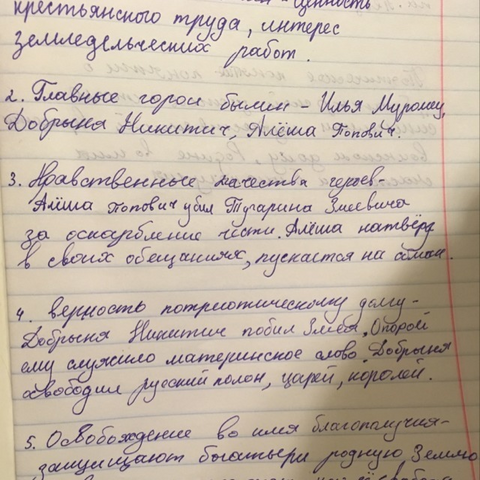 крестьянского труда, интерес
земледельческих работ.
2. Главные герои былин - Илья Муромец,
Добрыня Никитич, Алёша Попович.
3. Нравственные качества героев-
Алёша Попович убил Тугарина Змеевича
за оскарбление чести. Алёша натвёрд
в своих обещаниях, пускается на обман.
4. верность потриотическому долгу-
Добрыня Никитич побил Змея. Опорой
ему служило материнское слово. Добрыня
освободил русский полон, царей, королей.
5. Освобождение во имя благополучия-
защищают богатыри родную Землю